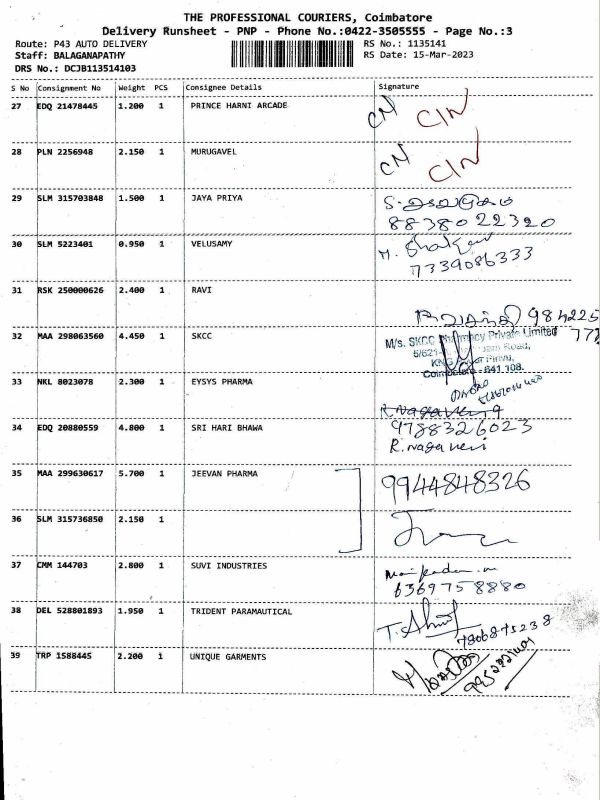 THE PROFESSIONAL COURIERS, Coimbatore
Delivery Runsheet - PNP - Phone No.:0422-3505555 - Page No.:3
Route: P43 AUTO DELIVERY RS No.: 1135141
Staff: BALAGANAPATHY RS Date: 15-Mar-2023
DRS No.: DCJB113514103
S No Consignment No Weight PCS Consignee Details Signature
27 EDQ 21478445 1.200 1 PRINCE HARNI ARCADE
28 PLN 2256948 2.150 1 MURUGAVEL
29 SLM 315703848 1.500 1 JAYA PRIYA
8838022320
30 SLM 5223401 0.950 1 VELUSAMY
7339086333
31 RSK 250000626 2.400 1 RAVI
984225
32 MAA 298063560 4.450 1 SKCC M/s. SKCC Pharmacy Private Limited
Coimbatore - 641 108.
33 NKL 8023078 2.300 1 EYSYS PHARMA
R.nagaveni
34 EDQ 20880559 4.800 1 SRI HARI BHAWA 9788326023
R.nagaveni
35 MAA 299630617 5.700 1 JEEVAN PHARMA 9944848326
36 SLM 315736850 2.150 1
37 CMM 144703 2.800 1 SUVI INDUSTRIES
6369758880
38 DEL 528801893 1.950 1 TRIDENT PARAMAUTICAL
7806875238
39 TRP 1588445 2.200 1 UNIQUE GARMENTS